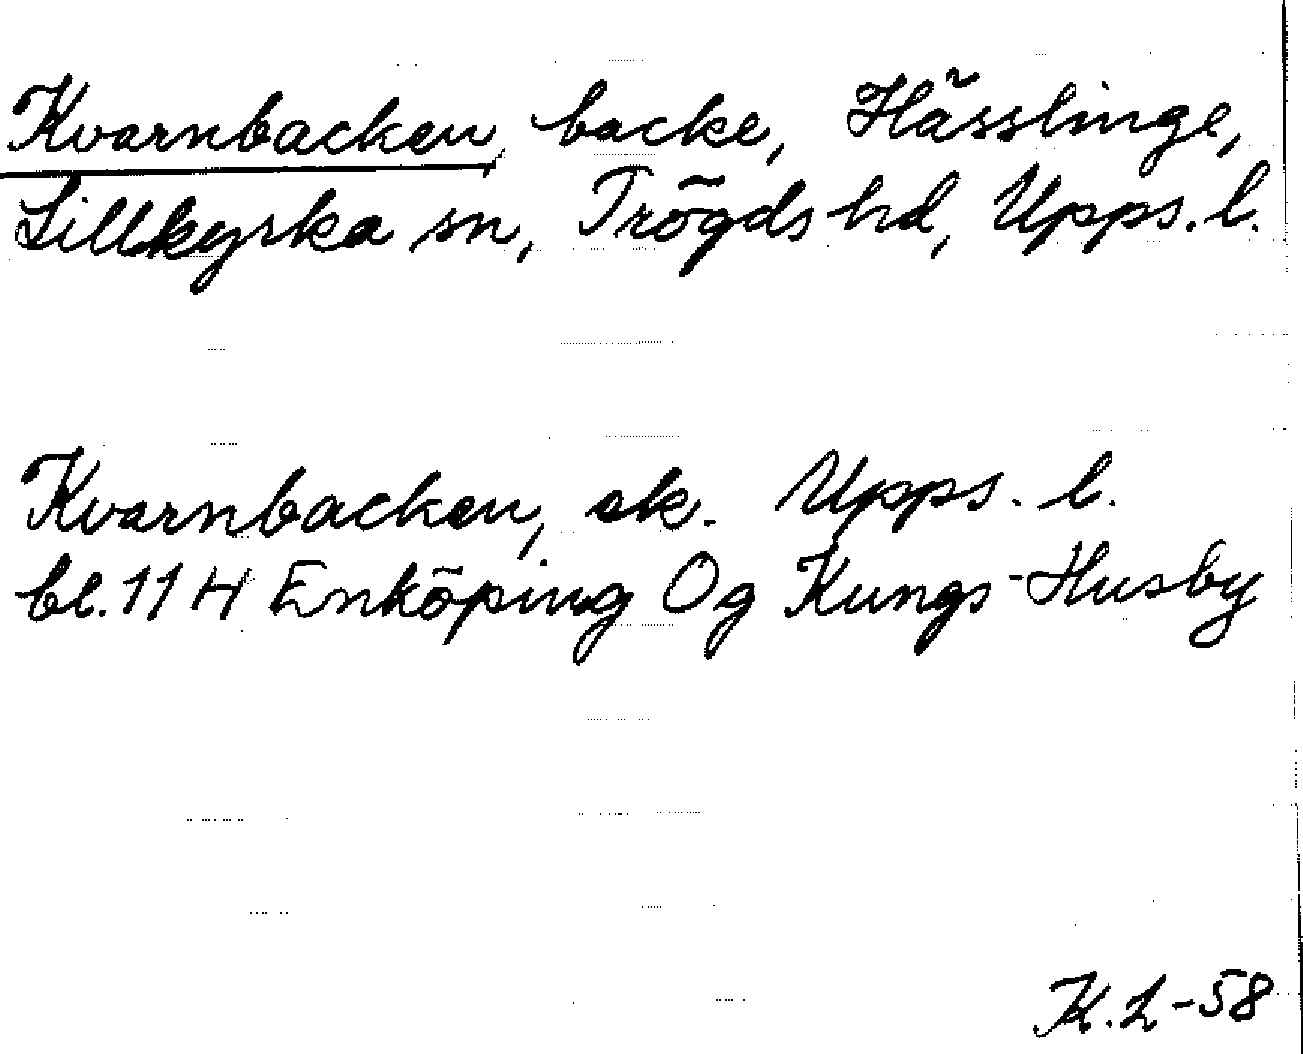 Kvarnbacken, backe, Hässlinge,
Lillkyrka sn, Trögds hd, Upps. l.
Kvarnbacken, ek. Upps. l.
bl. 11 H Enköping Og Kungs-Husby
K.L-58